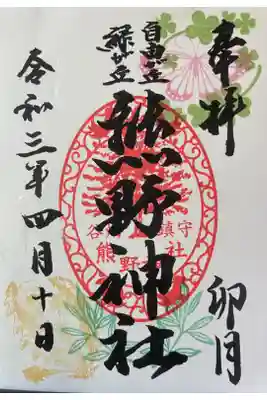 奉拝
卯月
自由が丘
緑が丘
熊野神社
谷 鎮守
熊野 社
令和三年四月十日